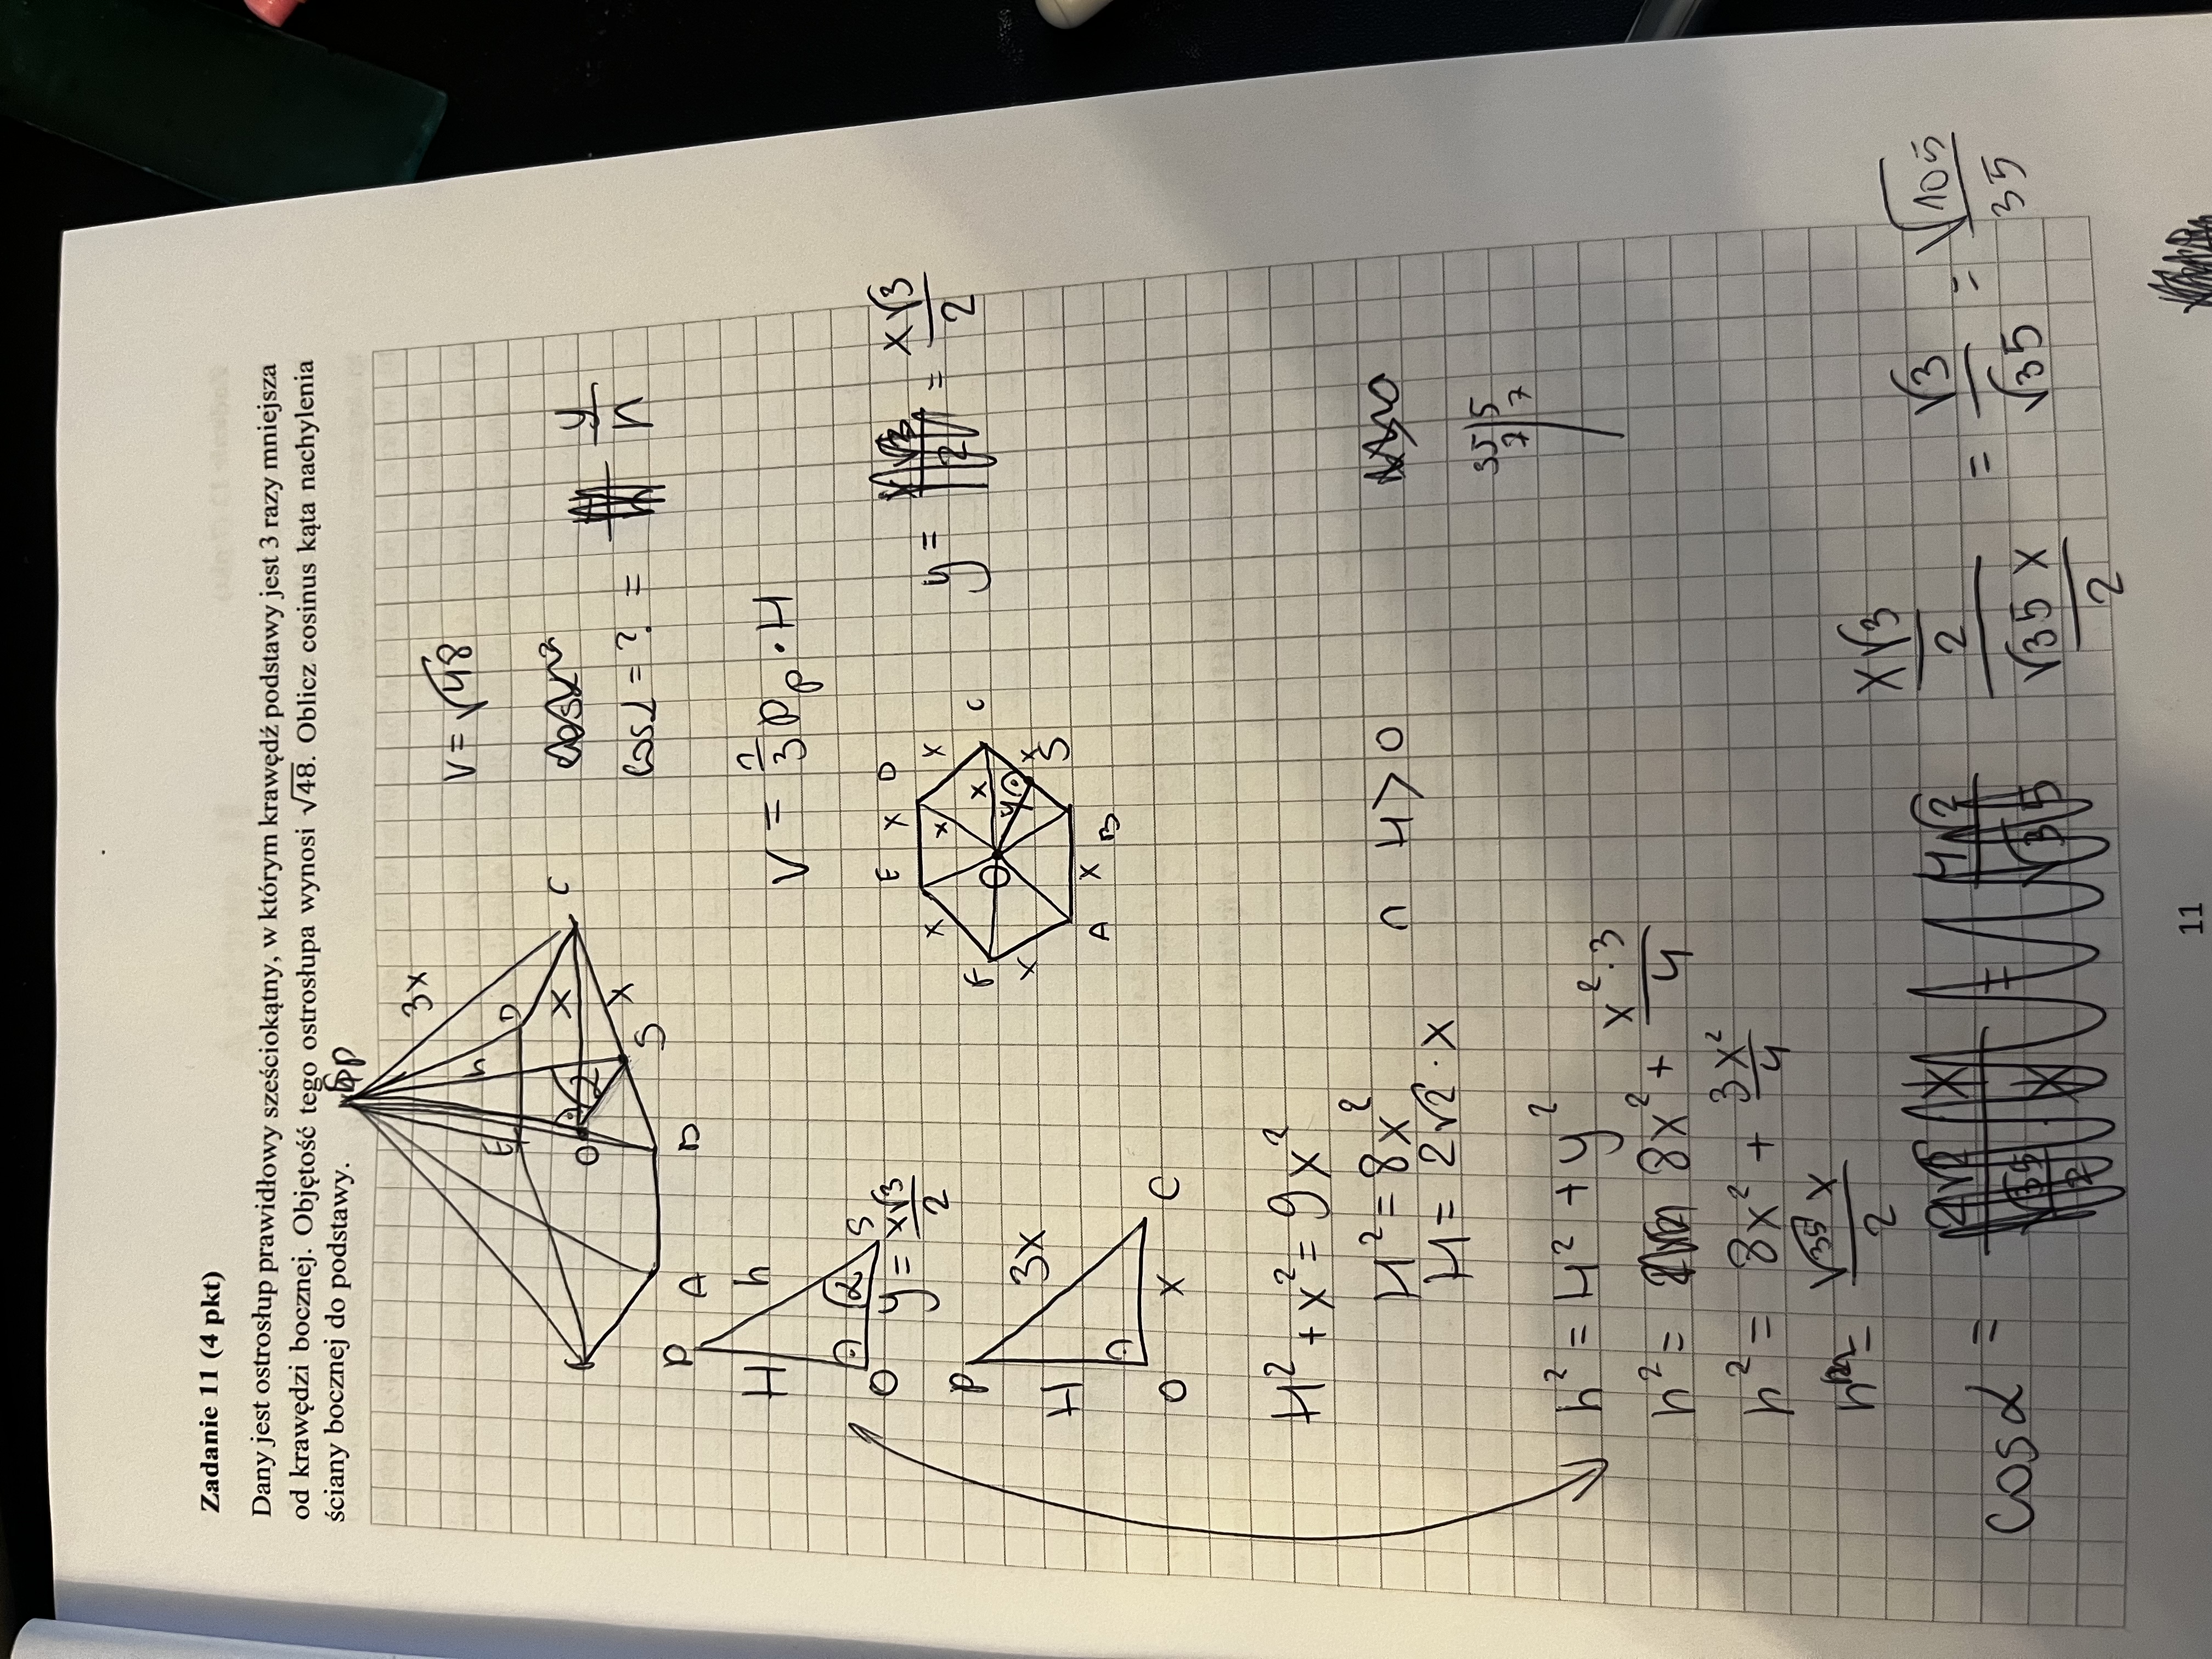 Zadanie 11 (4 pkt)
Dany jest ostrosłup prawidłowy sześciokątny, w którym krawędź podstawy jest 3 razy mniejsza
od krawędzi bocznej. Objętość tego ostrosłupa wynosi √48. Oblicz cosinus kąta nachylenia
ściany bocznej do podstawy.
P
3x
h
D
E
C
x
O
α
x
S
B
A
V = √48
cos α = ? = y/h
V = 1/3 Pp · H
P
h
H
α
S
O
y = x√3/2
E x D
x x
x
x
F O y C
x S
x
A x B
y = x√3/2
P
3x
H
O x C
H² + x² = 9x²
H² = 8x² ∩ H > 0
H = 2√2 · x
35|5
7|7
h² = H² + y²
h² = 8x² + x²·3/4
h² = 8x² + 3x²/4
h = √35 x/2
cos α = (x√3/2)/(√35 x/2) = √3/√35 = √105/35
11